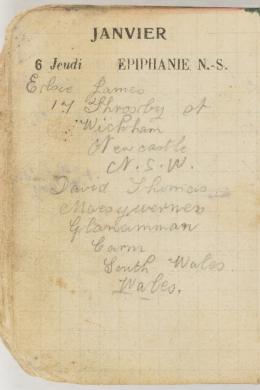 JANVIER
6 Jeudi EPIPHANIE N.-S.
Elsie James
17 Throsby st
Wickham
Newcastle
N. S. W.
David Thomas
Maesywernen
Glanamman
Carm
South Wales.
Wales.